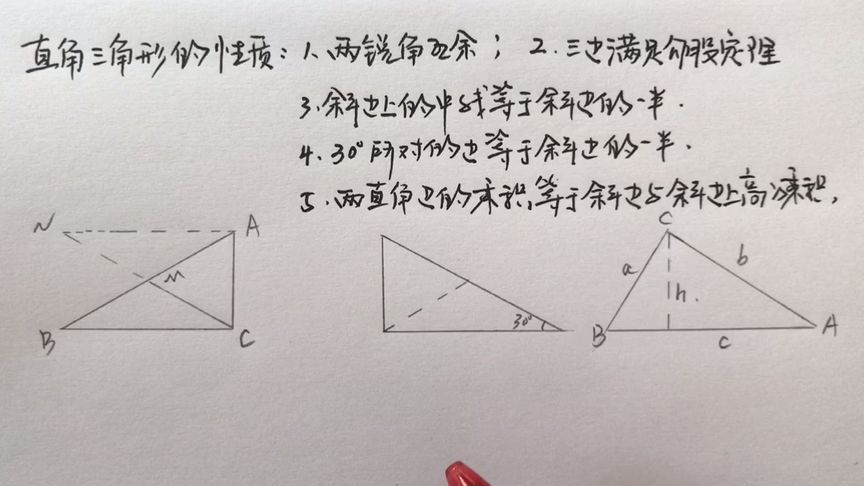 直角三角形的性质：1、两锐角互余；2.三边满足勾股定理
3.斜边上的中线等于斜边的一半.
4.30°所对的边等于斜边的一半.
5.两直角边的乘积等于斜边与斜边上高的乘积,
N A C
M a b
h.
30°
B C B A
c